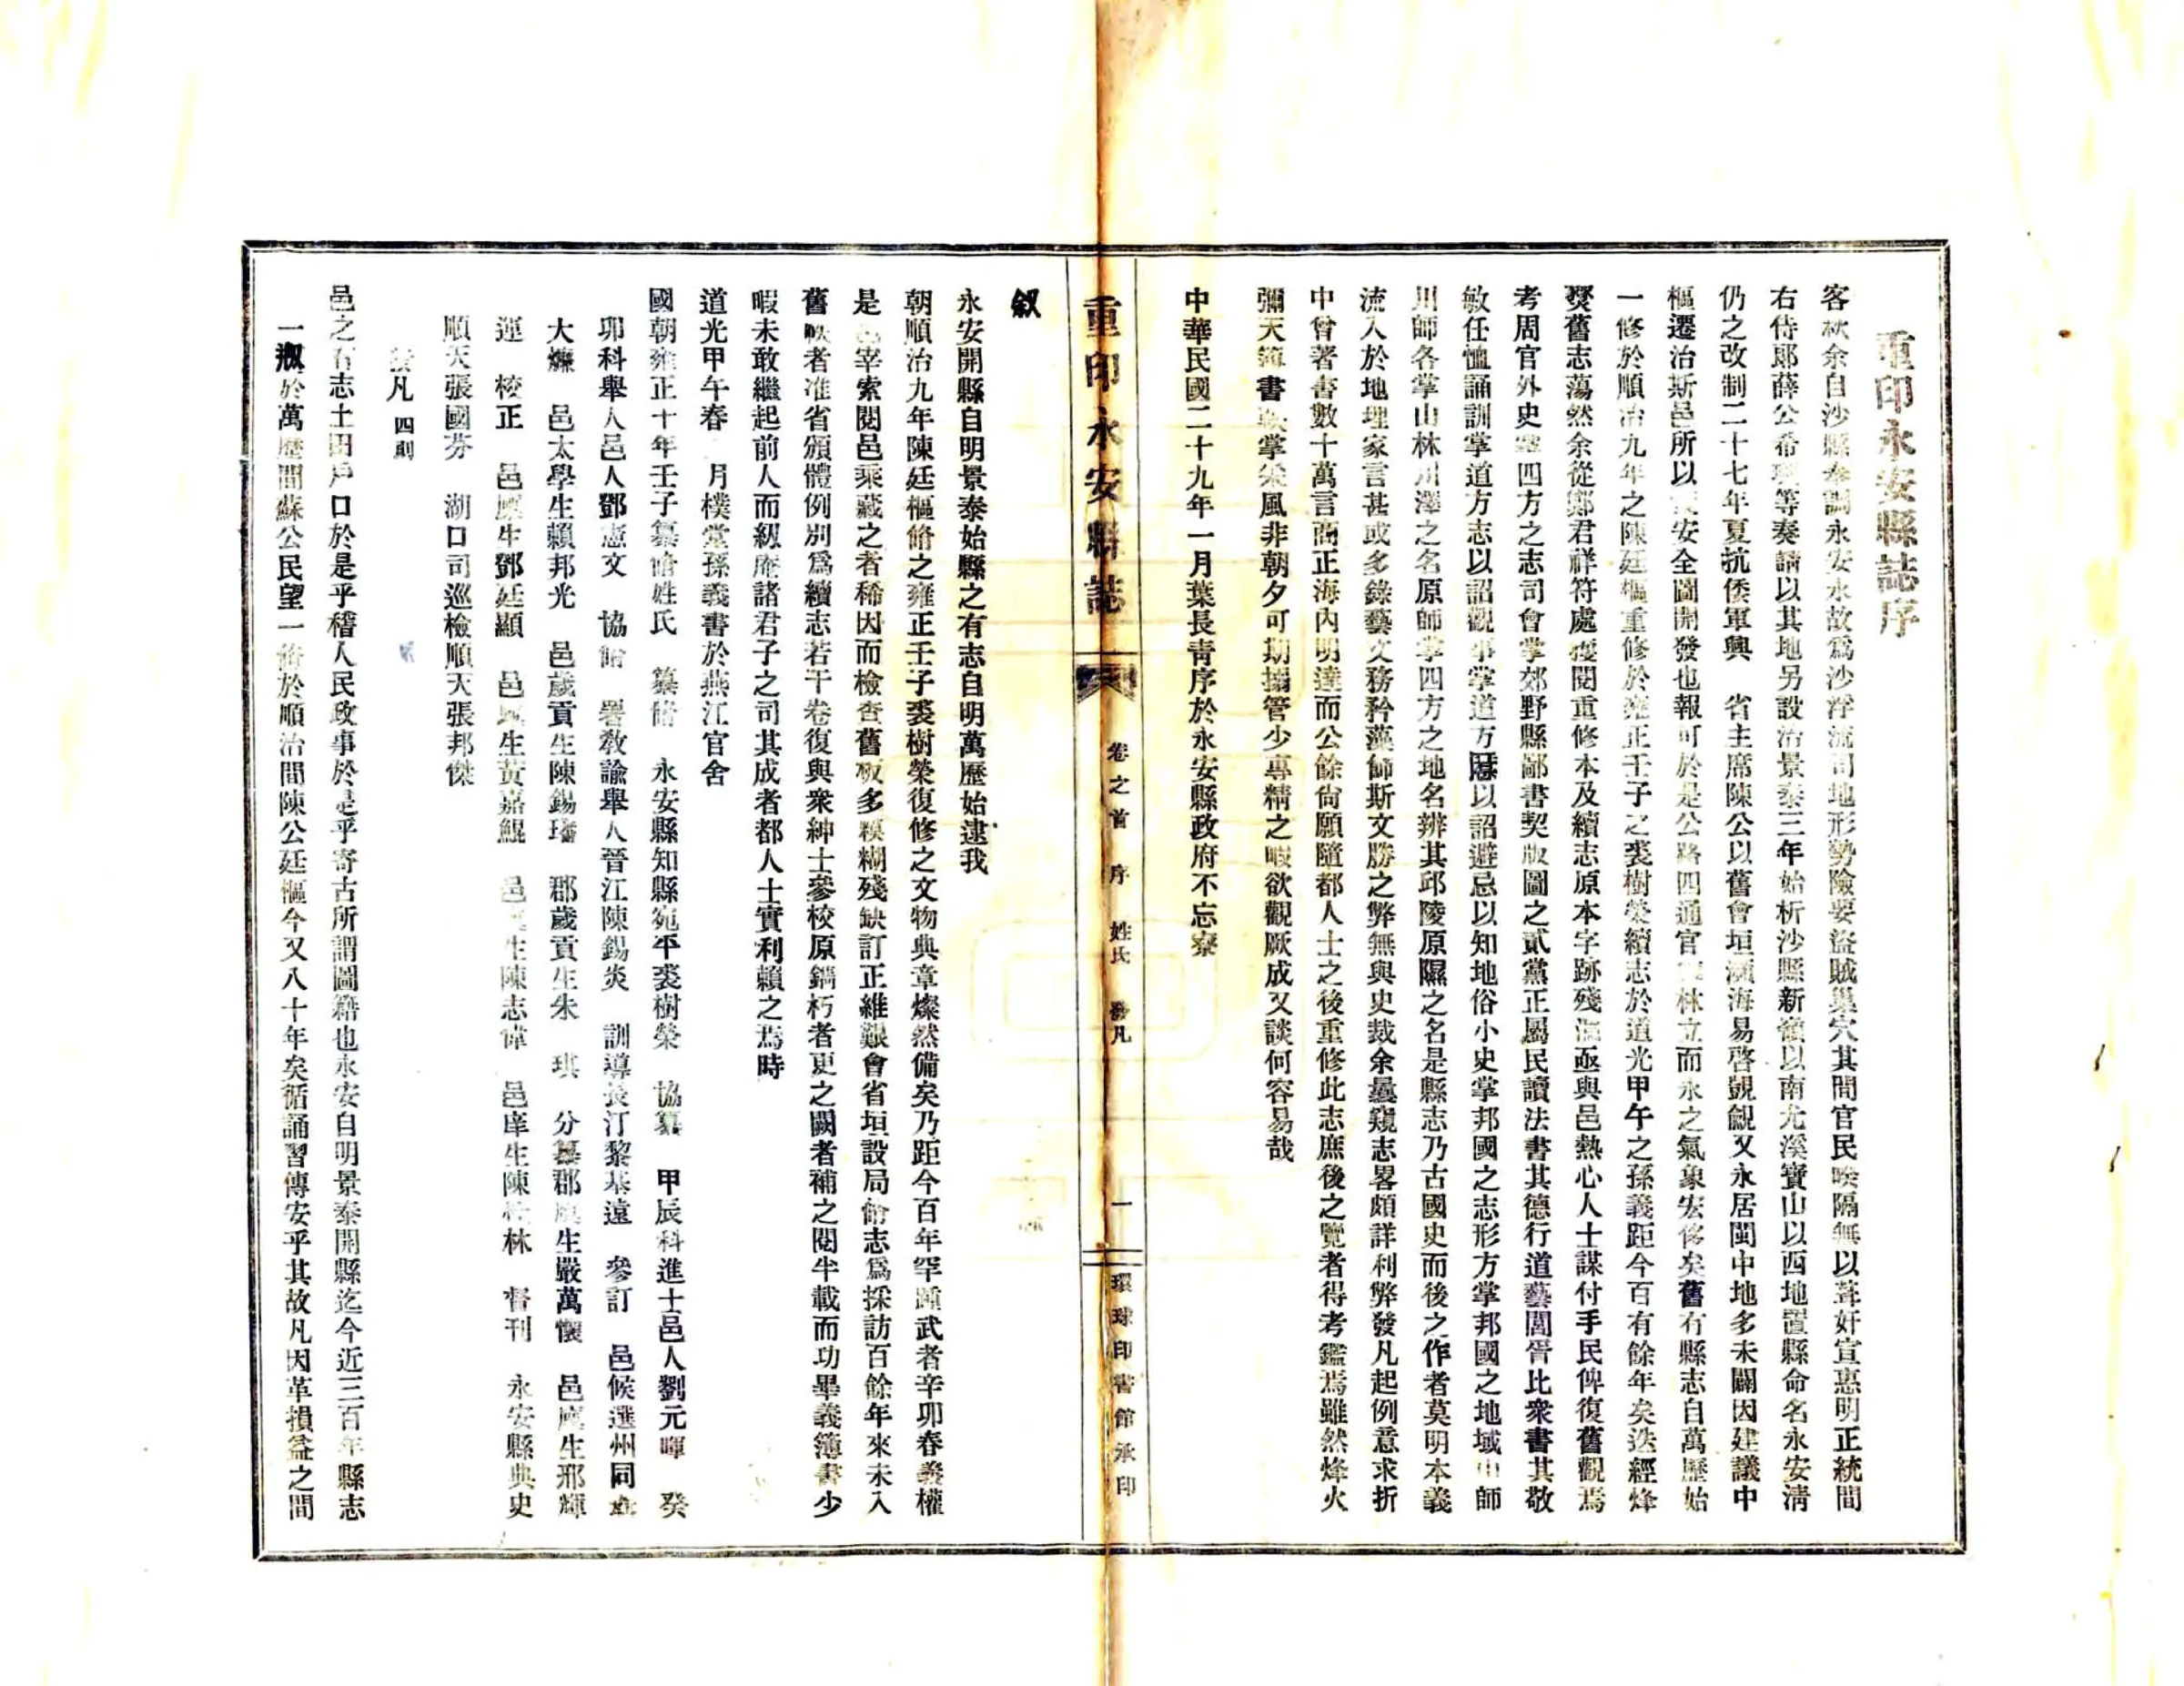 重印永安縣誌序
客秋余自沙縣奉調永安永故爲沙浮流司地形勢險要盜賊巢穴其間官民暌隔無以葺奸宣惠明正統間
右侍郎薛公希璉等奏請以其地另設治景泰三年始析沙縣新嶺以南尤溪寶山以西地置縣命名永安清
仍之改制二十七年夏抗倭軍興 省主席陳公以舊會垣瀕海易啓覬覦又永居閩中地多未闢因建議中
樞遷治斯邑所以安全圖開發也報可於是公路四通官林立而永之氣象宏侈矣舊有縣志自萬歷始
一修於順治九年之陳廷樞重修於雍正壬子之裘樹榮續志於道光甲午之孫義距今百有餘年矣迭經烽
燹舊志蕩然余從鄭君祥符處獲閱重修本及續志原本字跡殘亟與邑熱心人士謀付手民俾復舊觀焉
考周官外史掌四方之志司會掌郊野縣鄙書契版圖之貳黨正屬民讀法書其德行道藝閭胥比衆書其敬
敏任恤誦訓掌道方志以詔觀事掌道方慝以詔避忌以知地俗小史掌邦國之志形方掌邦國之地域山師
川師各掌山林川澤之名原師掌四方之地名辨其邱陵原隰之名是縣志乃古國史而後之作者莫明本義
流入於地理家言甚或多錄藝文務矜藻飾斯文勝之弊無與史裁余曩窺志畧頗詳利弊發凡起例意求折
中曾著書數十萬言商正海內明達而公餘尙願隨都人士之後重修此志庶後之覽者得考鑑焉雖然烽火
彌天簿書鞅掌采風非朝夕可期搦管少專精之暇欲觀厥成又談何容易哉
中華民國二十九年一月葉長青序於永安縣政府不忘寮
重印永安縣誌
卷之首 序 姓氏 發凡
一
環球印書館承印
敘
永安開縣自明景泰始縣之有志自明萬歷始逮我
朝順治九年陳廷樞脩之雍正壬子裘樹榮復修之文物典章燦然備矣乃距今百年罕踵武者辛卯春義權
是邑宰索閱邑乘藏之者稀因而檢查舊板多模糊殘缺訂正維艱會省垣設局脩志爲採訪百餘年來未入
舊帙者准省頒體例別爲續志若干卷復與衆紳士參校原鐫朽者更之闕者補之閱半載而功畢義簿書少
暇未敢繼起前人而級庵諸君子之司其成者都人士實利賴之焉時
道光甲午春月樸堂孫義書於燕江官舍
國朝雍正十年壬子纂脩姓氏 纂脩 永安縣知縣宛平裘樹榮 協纂 甲辰科進士邑人劉元暉 癸
卯科舉人邑人鄧憲文 協脩 署敎諭舉人晉江陳錫炎 訓導長汀黎基遠 參訂 邑候選州同
大 邑太學生賴邦光 邑歲貢生陳錫璠 郡歲貢生朱 琪 分纂郡廩生嚴萬懷 邑廩生邢輝
運 校正 邑廩生鄧廷顯 邑生黃嘉鯤 邑生陳志偉 邑庠生陳林 督刊 永安縣典史
順天張國芬 湖口司巡檢順天張邦傑
發凡 四則
邑之有志土田戶口於是乎稽人民政事於是乎寄古所謂圖籍也永安自明景泰開縣迄今近三百年縣志
一刱於萬歷間蘇公民望一脩於順治間陳公廷樞今又八十年矣循誦習傳安乎其故凡因革損益之間